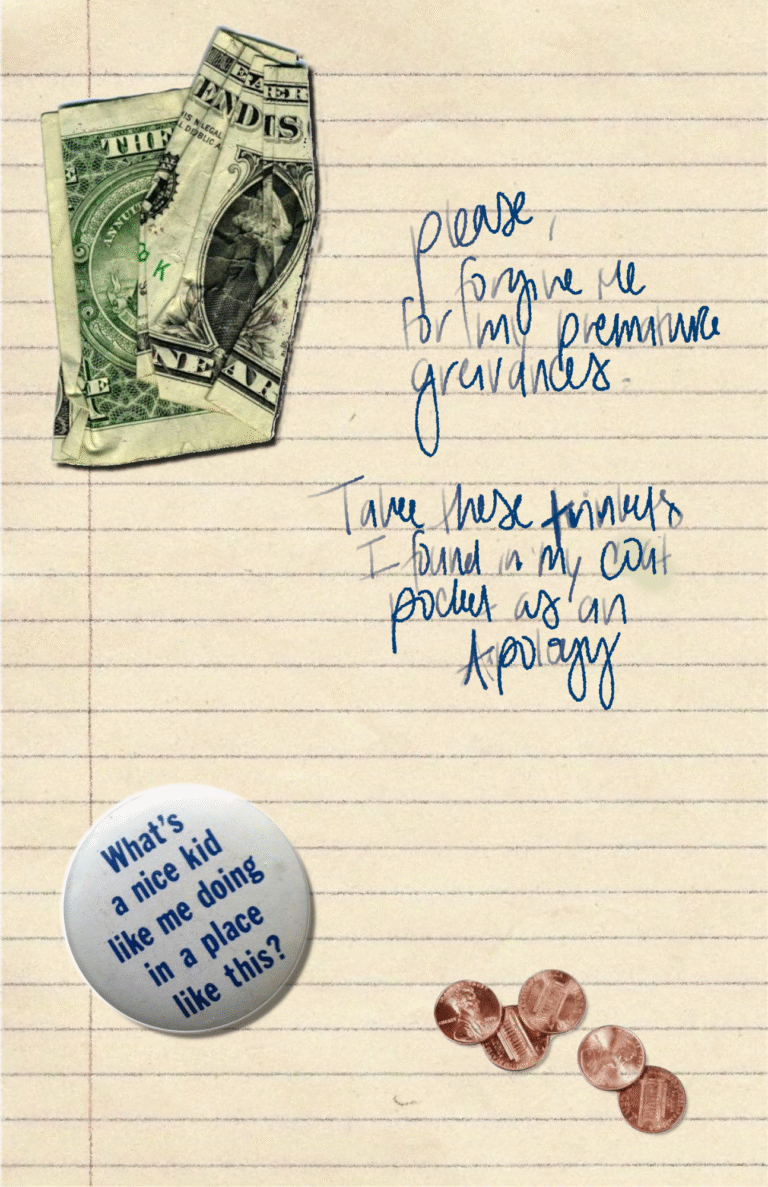 THE
ANNUIT
EA
ER
ENDIS
IS LEGAL
K
NE AR
E
please,
forgive me
for my premature
greivances.
Take these trinkets
I found in my coat
pocket as an
Apology
What's
a nice kid
like me doing
in a place
like this?